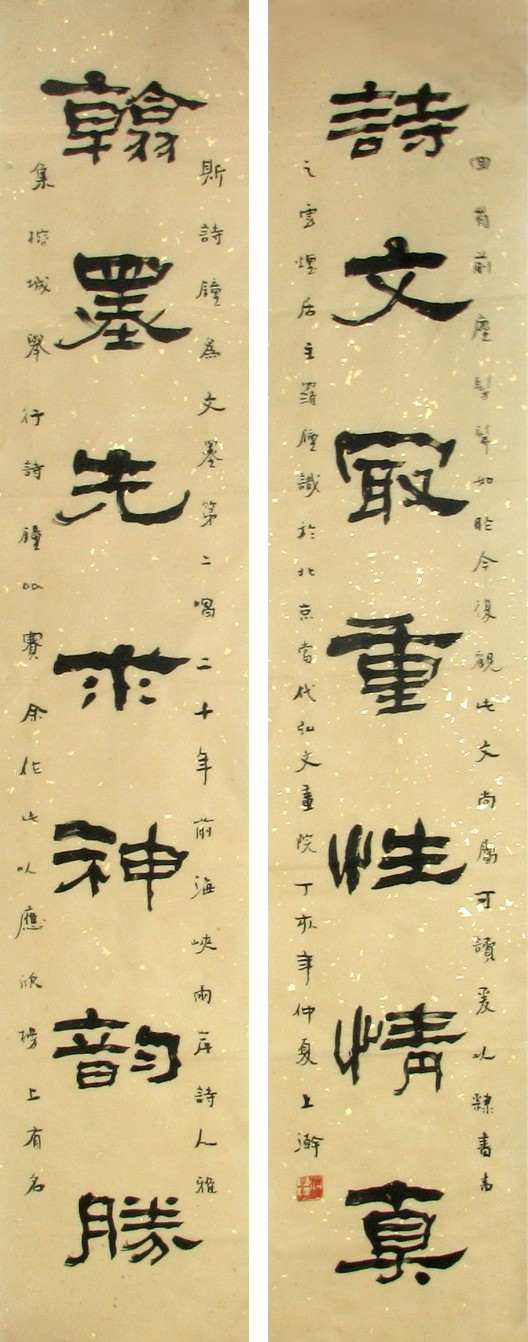 回首前塵髣髴如昨今復觀此文尚屬可讀爰以隸書書
詩文冣重性情真
之雲煙居主羅鐘識於北京當代弘文畫院丁亥年仲夏上澣
斯詩鐘為文墨第二唱二十年前海峽兩岸詩人雅
翰墨先求神韵勝
集榕城舉行詩鐘賽余作此以應欣榜上有名